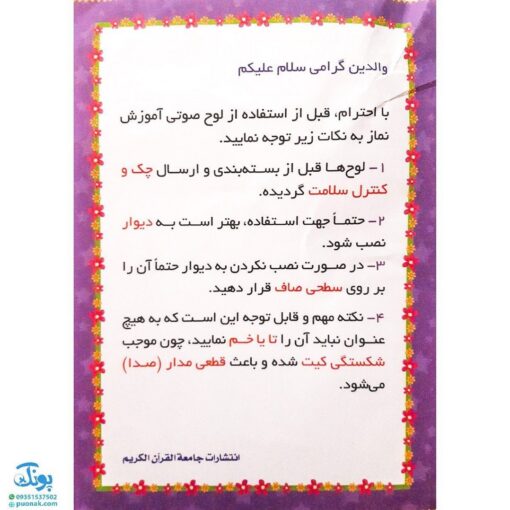 والدین گرامی سلام علیکم
با احترام، قبل از استفاده از لوح صوتی آموزش
نماز به نکات زیر توجه نمایید.
۱- لوح‌ها قبل از بسته‌بندی و ارسال چک و
کنترل سلامت گردیده.
۲- حتماً جهت استفاده، بهتر است به دیوار
نصب شود.
۳- در صورت نصب نکردن به دیوار حتماً آن را
بر روی سطحی صاف قرار دهید.
۴- نکته مهم و قابل توجه این است که به هیچ
عنوان نباید آن را تا یا خم نمایید، چون موجب
شکستگی کیت شده و باعث قطعی مدار (صدا)
می‌شود.
انتشارات جامعة القرآن الکریم
پونک
09351537502
puonak.com